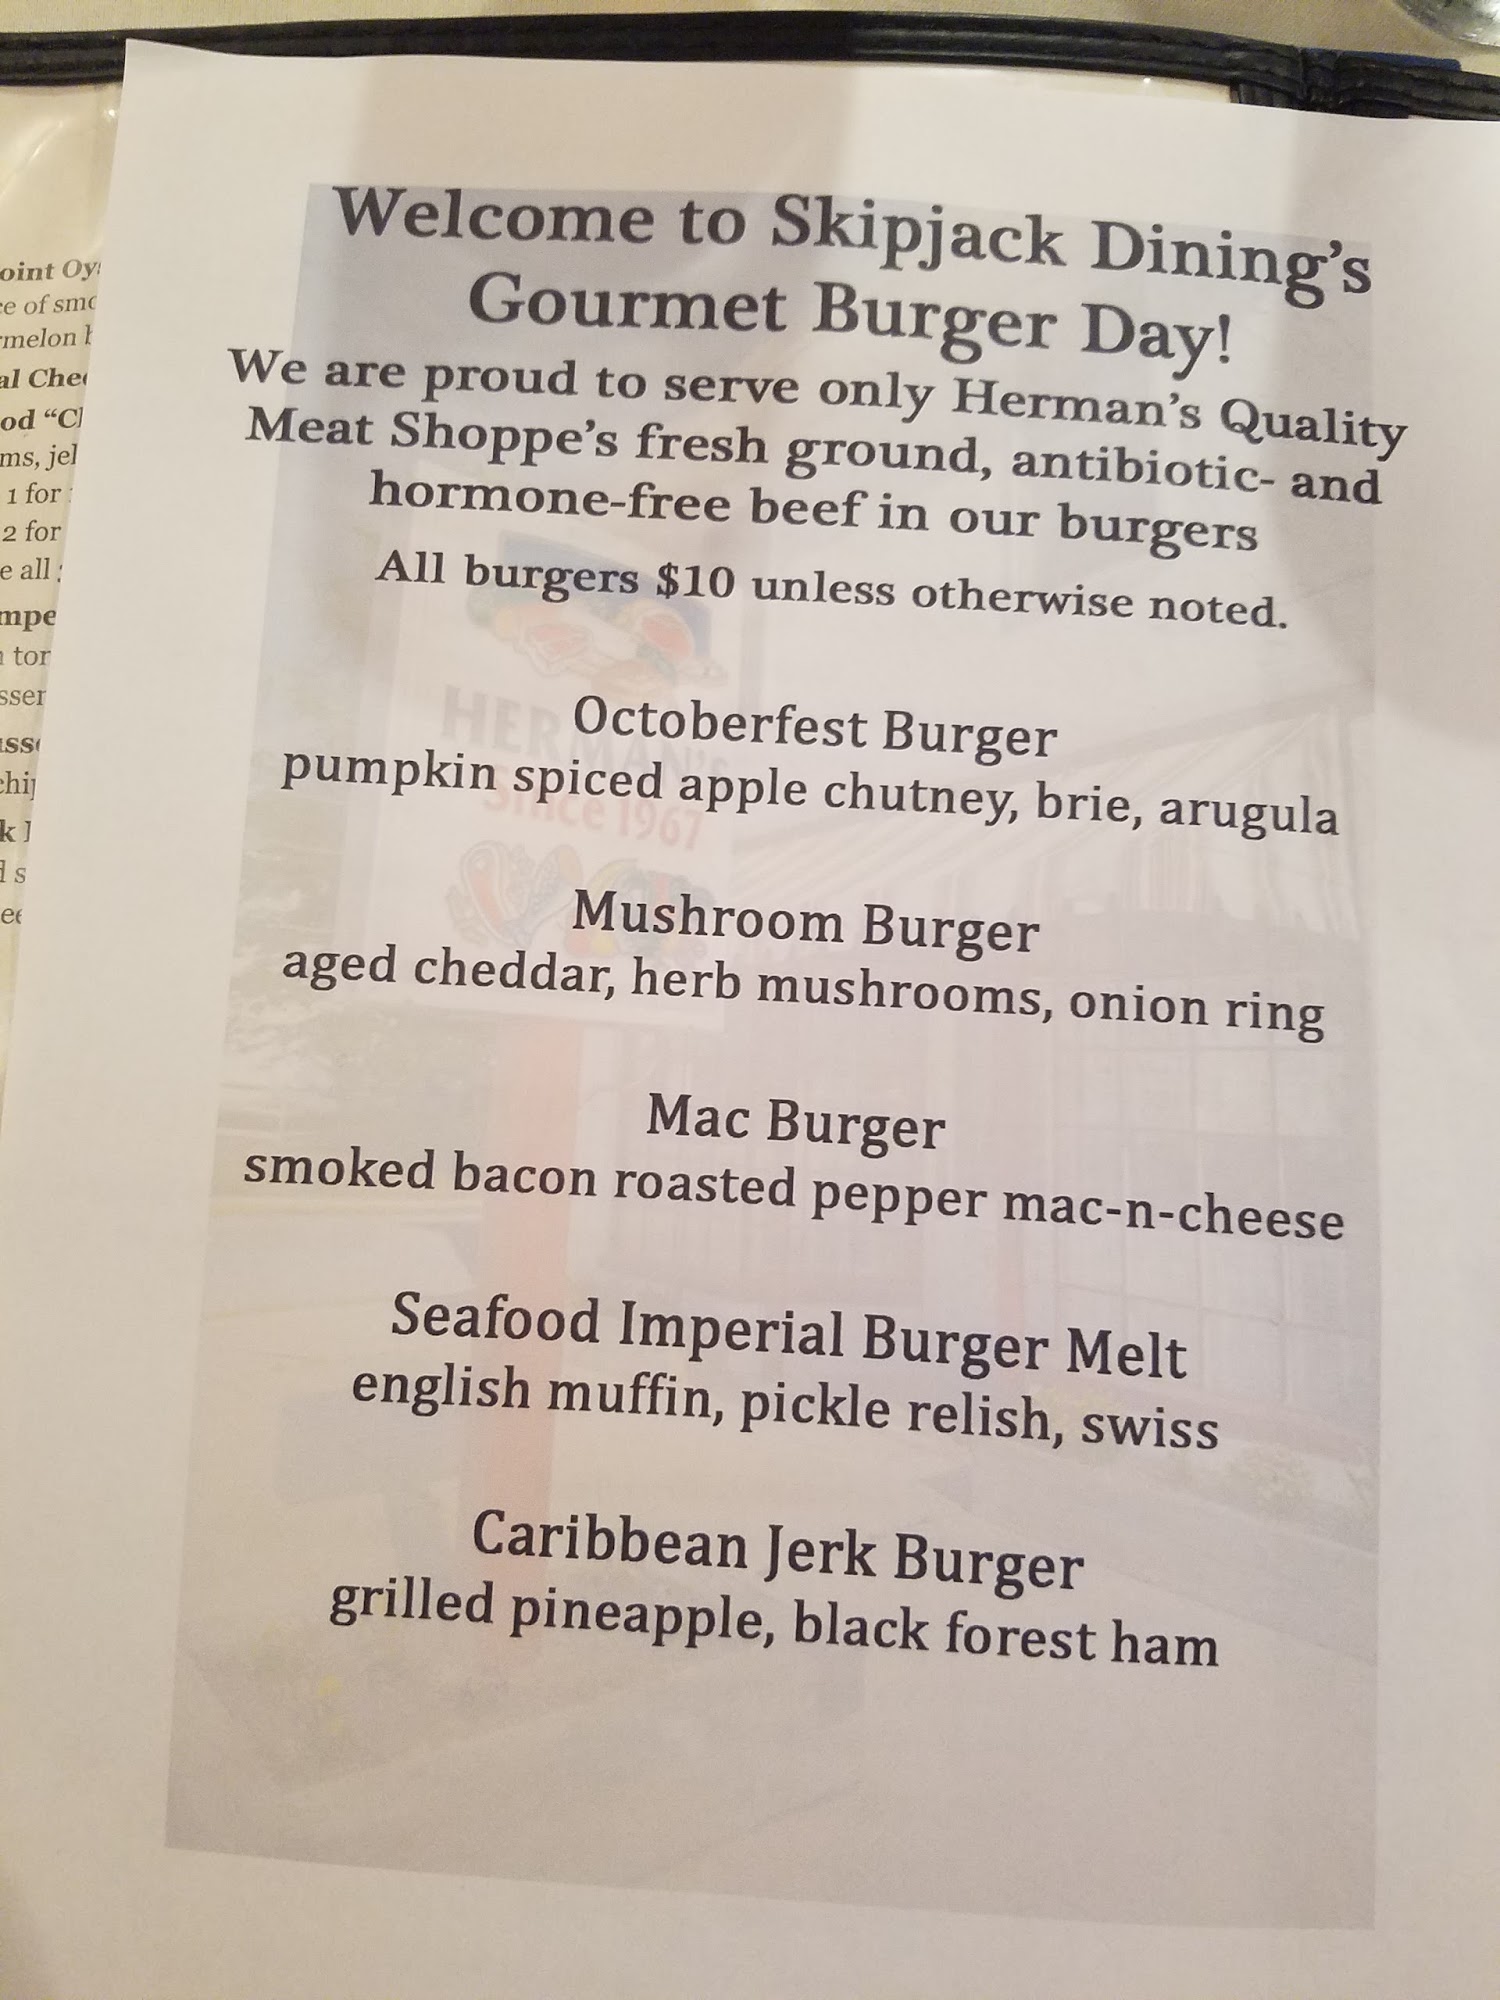 Welcome to Skipjack Dining's
Gourmet Burger Day!
We are proud to serve only Herman's Quality
Meat Shoppe's fresh ground, antibiotic- and
hormone-free beef in our burgers
All burgers $10 unless otherwise noted.
Octoberfest Burger
pumpkin spiced apple chutney, brie, arugula
Mushroom Burger
aged cheddar, herb mushrooms, onion ring
Mac Burger
smoked bacon roasted pepper mac-n-cheese
Seafood Imperial Burger Melt
english muffin, pickle relish, swiss
Caribbean Jerk Burger
grilled pineapple, black forest ham
HERMAN'S
Since 1967
of
1 for
2 for
all